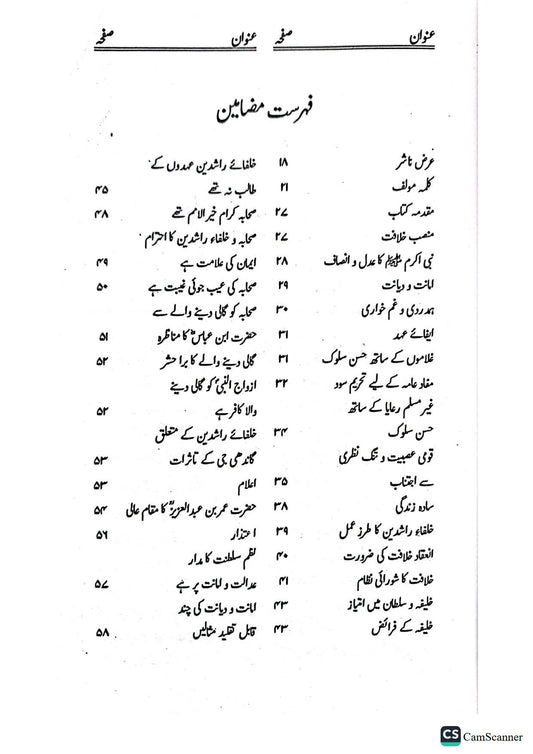 عنوان صفحہ عنوان صفحہ
فہرست مضامین
عرض ناشر ۱۸
کلمہ مولف ۲۱
مقدمہ کتاب ۲۷
منصب خلافت ۲۷
نبی اکرم ﷺ کا عدل و انصاف ۲۸
امانت و دیانت ۲۹
ہمدردی و غم خواری ۳۰
ایفائے عہد ۳۱
غلاموں کے ساتھ حسن سلوک ۳۱
مفاد عامہ کے لیے تحریم سود ۳۲
غیر مسلم رعایا کے ساتھ
حسن سلوک ۳۴
قومی عصبیت و تنگ نظری
سے اجتناب ۳۵
سادہ زندگی ۳۸
خلفاء راشدین کا طرز عمل ۳۹
انعقاد خلافت کی ضرورت ۴۰
خلافت کا شورائی نظام ۴۱
خلیفہ و سلطان میں امتیاز ۴۳
خلیفہ کے فرائض ۴۳
خلفائے راشدین عہدوں کے
طالب نہ تھے ۴۵
صحابہ کرام خیر الامم تھے ۴۸
صحابہ و خلفاء راشدین کا احترام
ایمان کی علامت ہے ۴۹
صحابہ کی عیب جوئی غیبت ہے ۵۰
صحابہ کو گالی دینے والے سے
حضرت ابن عباسؓ کا مناظرہ ۵۱
گالی دینے والے کا برا حشر ۵۲
ازواج النبیؐ کو گالی دینے
والا کافر ہے ۵۲
خلفائے راشدین کے متعلق
گاندھی جی کے تاثرات ۵۳
اعلام ۵۳
حضرت عمر بن عبدالعزیزؒ کا مقام عالی ۵۴
اعتذار ۵۶
نظم سلطنت کا مدار
عدالت و امانت پر ہے ۵۷
امانت و دیانت کی چند
قابل تقلید مثالیں ۵۸
CS CamScanner